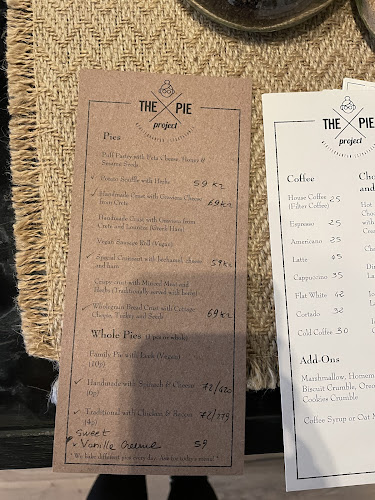 THE PIE
project
Pies
Puff Pastry with Feta Cheese, Honey &
Sesame Seeds
Potato Souffle with Herbs 59 kr
Handmade Crust with Graviera Cheese
from Crete 69kr
Handmade Crust with Graviera from
Crete and
Vegan Sausage Roll (Vegan)
Special Croissant with bechamel, cheese
and ham 59kr
with Minced Meat and
Herbs (Traditionally served with
Wholegrain Bread Crust with Cottage
Cheese, Turkey and Seeds 69kr
Whole Pies
Family Pie with Leek (Vegan)
Handmade with Spinach & Cheese 72/
Traditional with Chicken & Bacon 72/
Sweet
Vanilla Creme 59
* We bake different pies every day. Ask for today's menu! *
THE PIE
project
Coffee
House Coffee 25
(Filter Coffee)
Espresso 25
Americano 25
Latte 45
Cappuccino 35
Flat White 42
Cortado 32
Cold Coffee 30
Add-Ons
Marshmallow, Homem
Biscuit Crumble, Oreo
Cookies Crumble
Coffee Syrup or Oat M